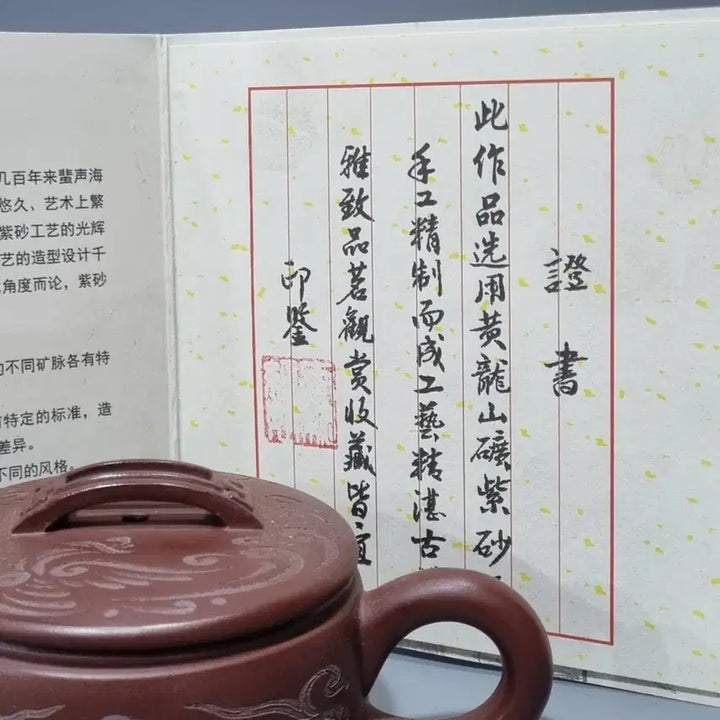 几百年来蜚声海
悠久、艺术上繁
紫砂工艺的光辉
艺的造型设计千
角度而论，紫砂
不同矿脉各有特
特定的标准，造
差异。
不同的风格。
證書
此作品选用黄龍山礦紫砂
手工精制而成工藝精湛古
雅致品茗觀赏收藏皆宜
印鉴